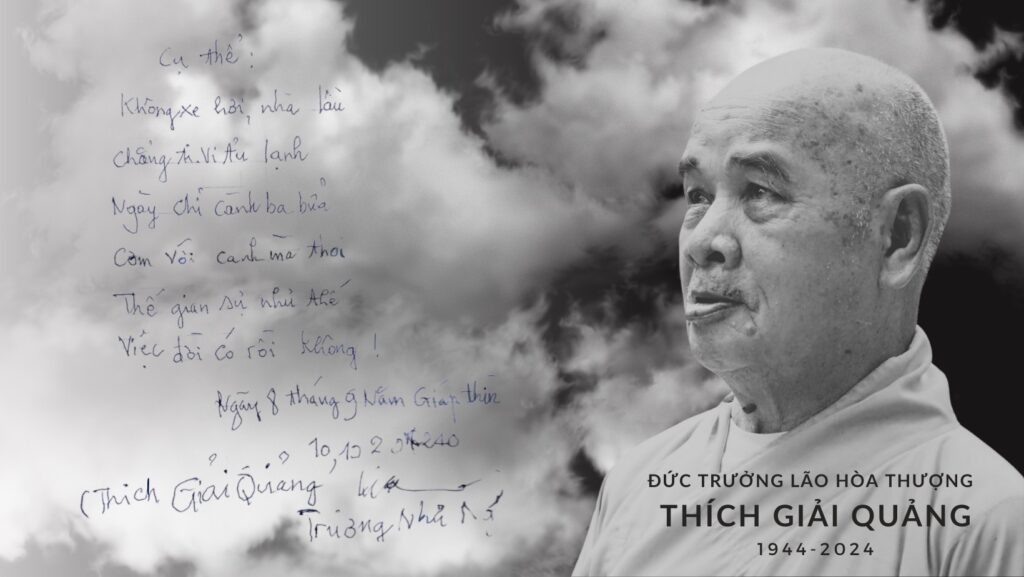 Cụ thể:
Không xe hơi, nhà lầu
Chẳng ti.vi tủ lạnh
Ngày chỉ cảnh ba bữa
Cơm với canh mà thôi
Thế gian sự như thế
Việc đời có rồi không!
Ngày 8 tháng 9 Năm Giáp thìn
(Thích Giải Quảng
Trương Như
ĐỨC TRƯỞNG LÃO HÒA THƯỢNG
THÍCH GIẢI QUẢNG
1944-2024